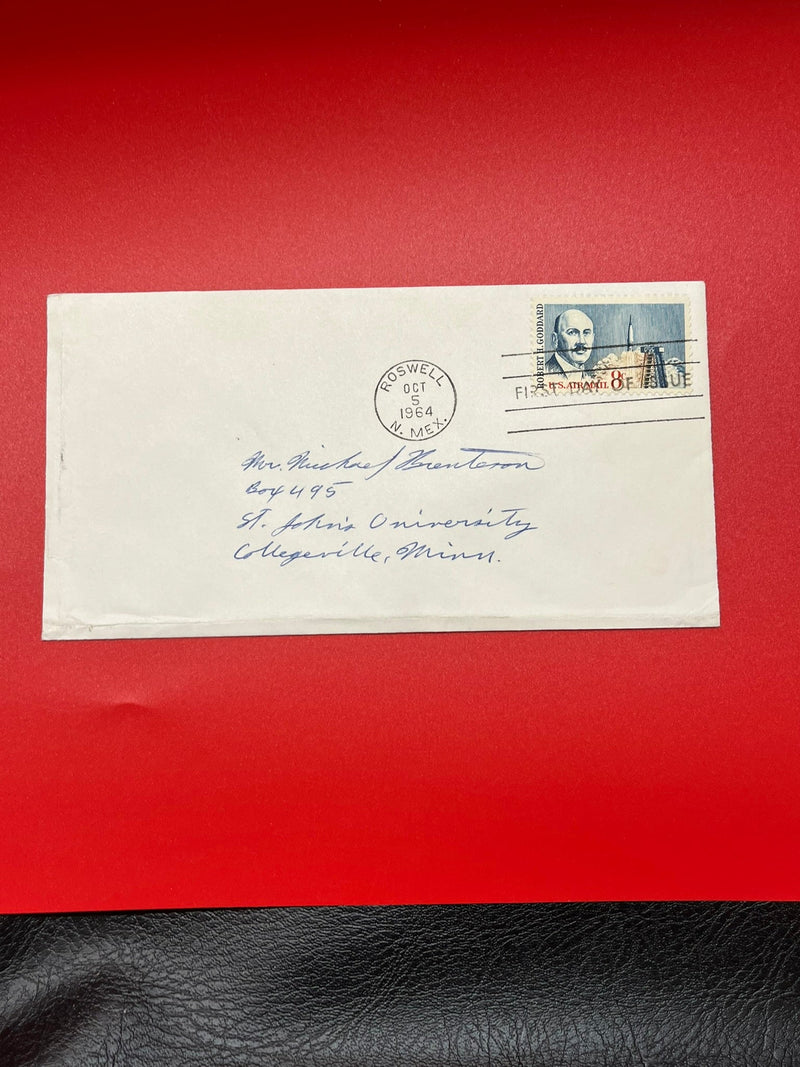 ROBERT H. GODDARD
U.S. AIR MAIL 8¢
FIRST DAY OF ISSUE
ROSWELL
OCT
5
1964
N. MEX.
Mr. Michael
Box 495
St. John's University
Collegeville, Minn.